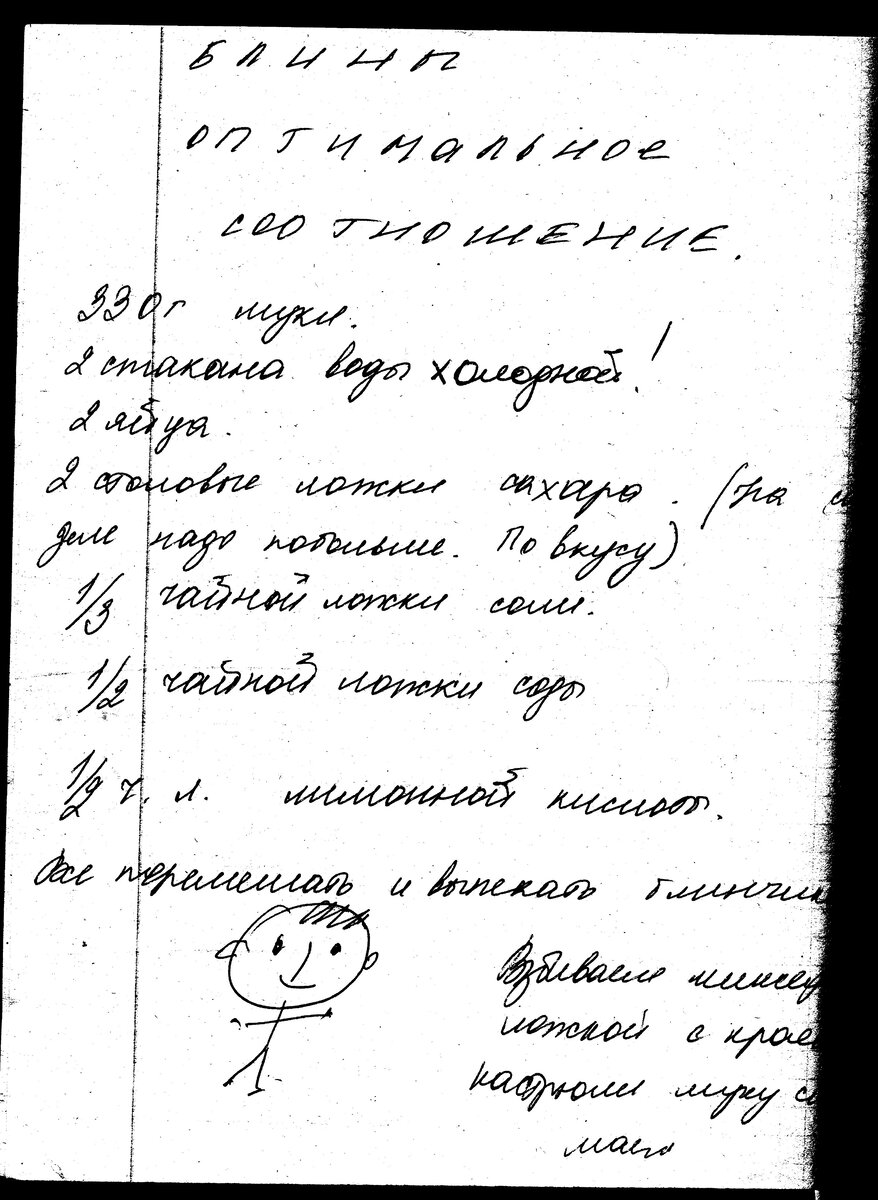 БЛИНЫ
ОПТИМАЛЬНОЕ
СООТНОШЕНИЕ.
330г муки.
2 стакана воды холодной!
2 яйца.
2 столовые ложки сахара. (На
деле надо побольше. По вкусу)
1/3 чайной ложки соли.
1/2 чайной ложки соды
1/2 ч. л. лимонной кислоты.
Все перемешать и выпекать блинчик
Взбиваем
ложкой с края
кастрюли муку с